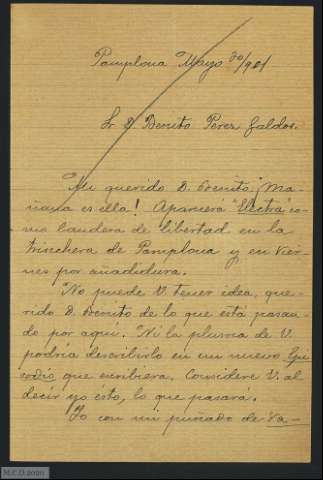 Pamplona Mayo 30/901
Sr D. Benito Perez Galdos.
Mi querido D. Benito: Ma-
ñana es ella! Aparecerá "Electra" co-
mo bandera de libertad en la
trinchera de Pamplona y en vier-
nes por añadidura.
No puede V. tener idea, que-
rido D. Benito de lo que está pasan-
do por aquí. Ni la pluma de V.
podría describirlo en un nuevo Epi-
sodio que escribiera. Considere V. al
decir yo ésto, lo que pasará.
Yo con mi puñado de va-
M.C.D 2020